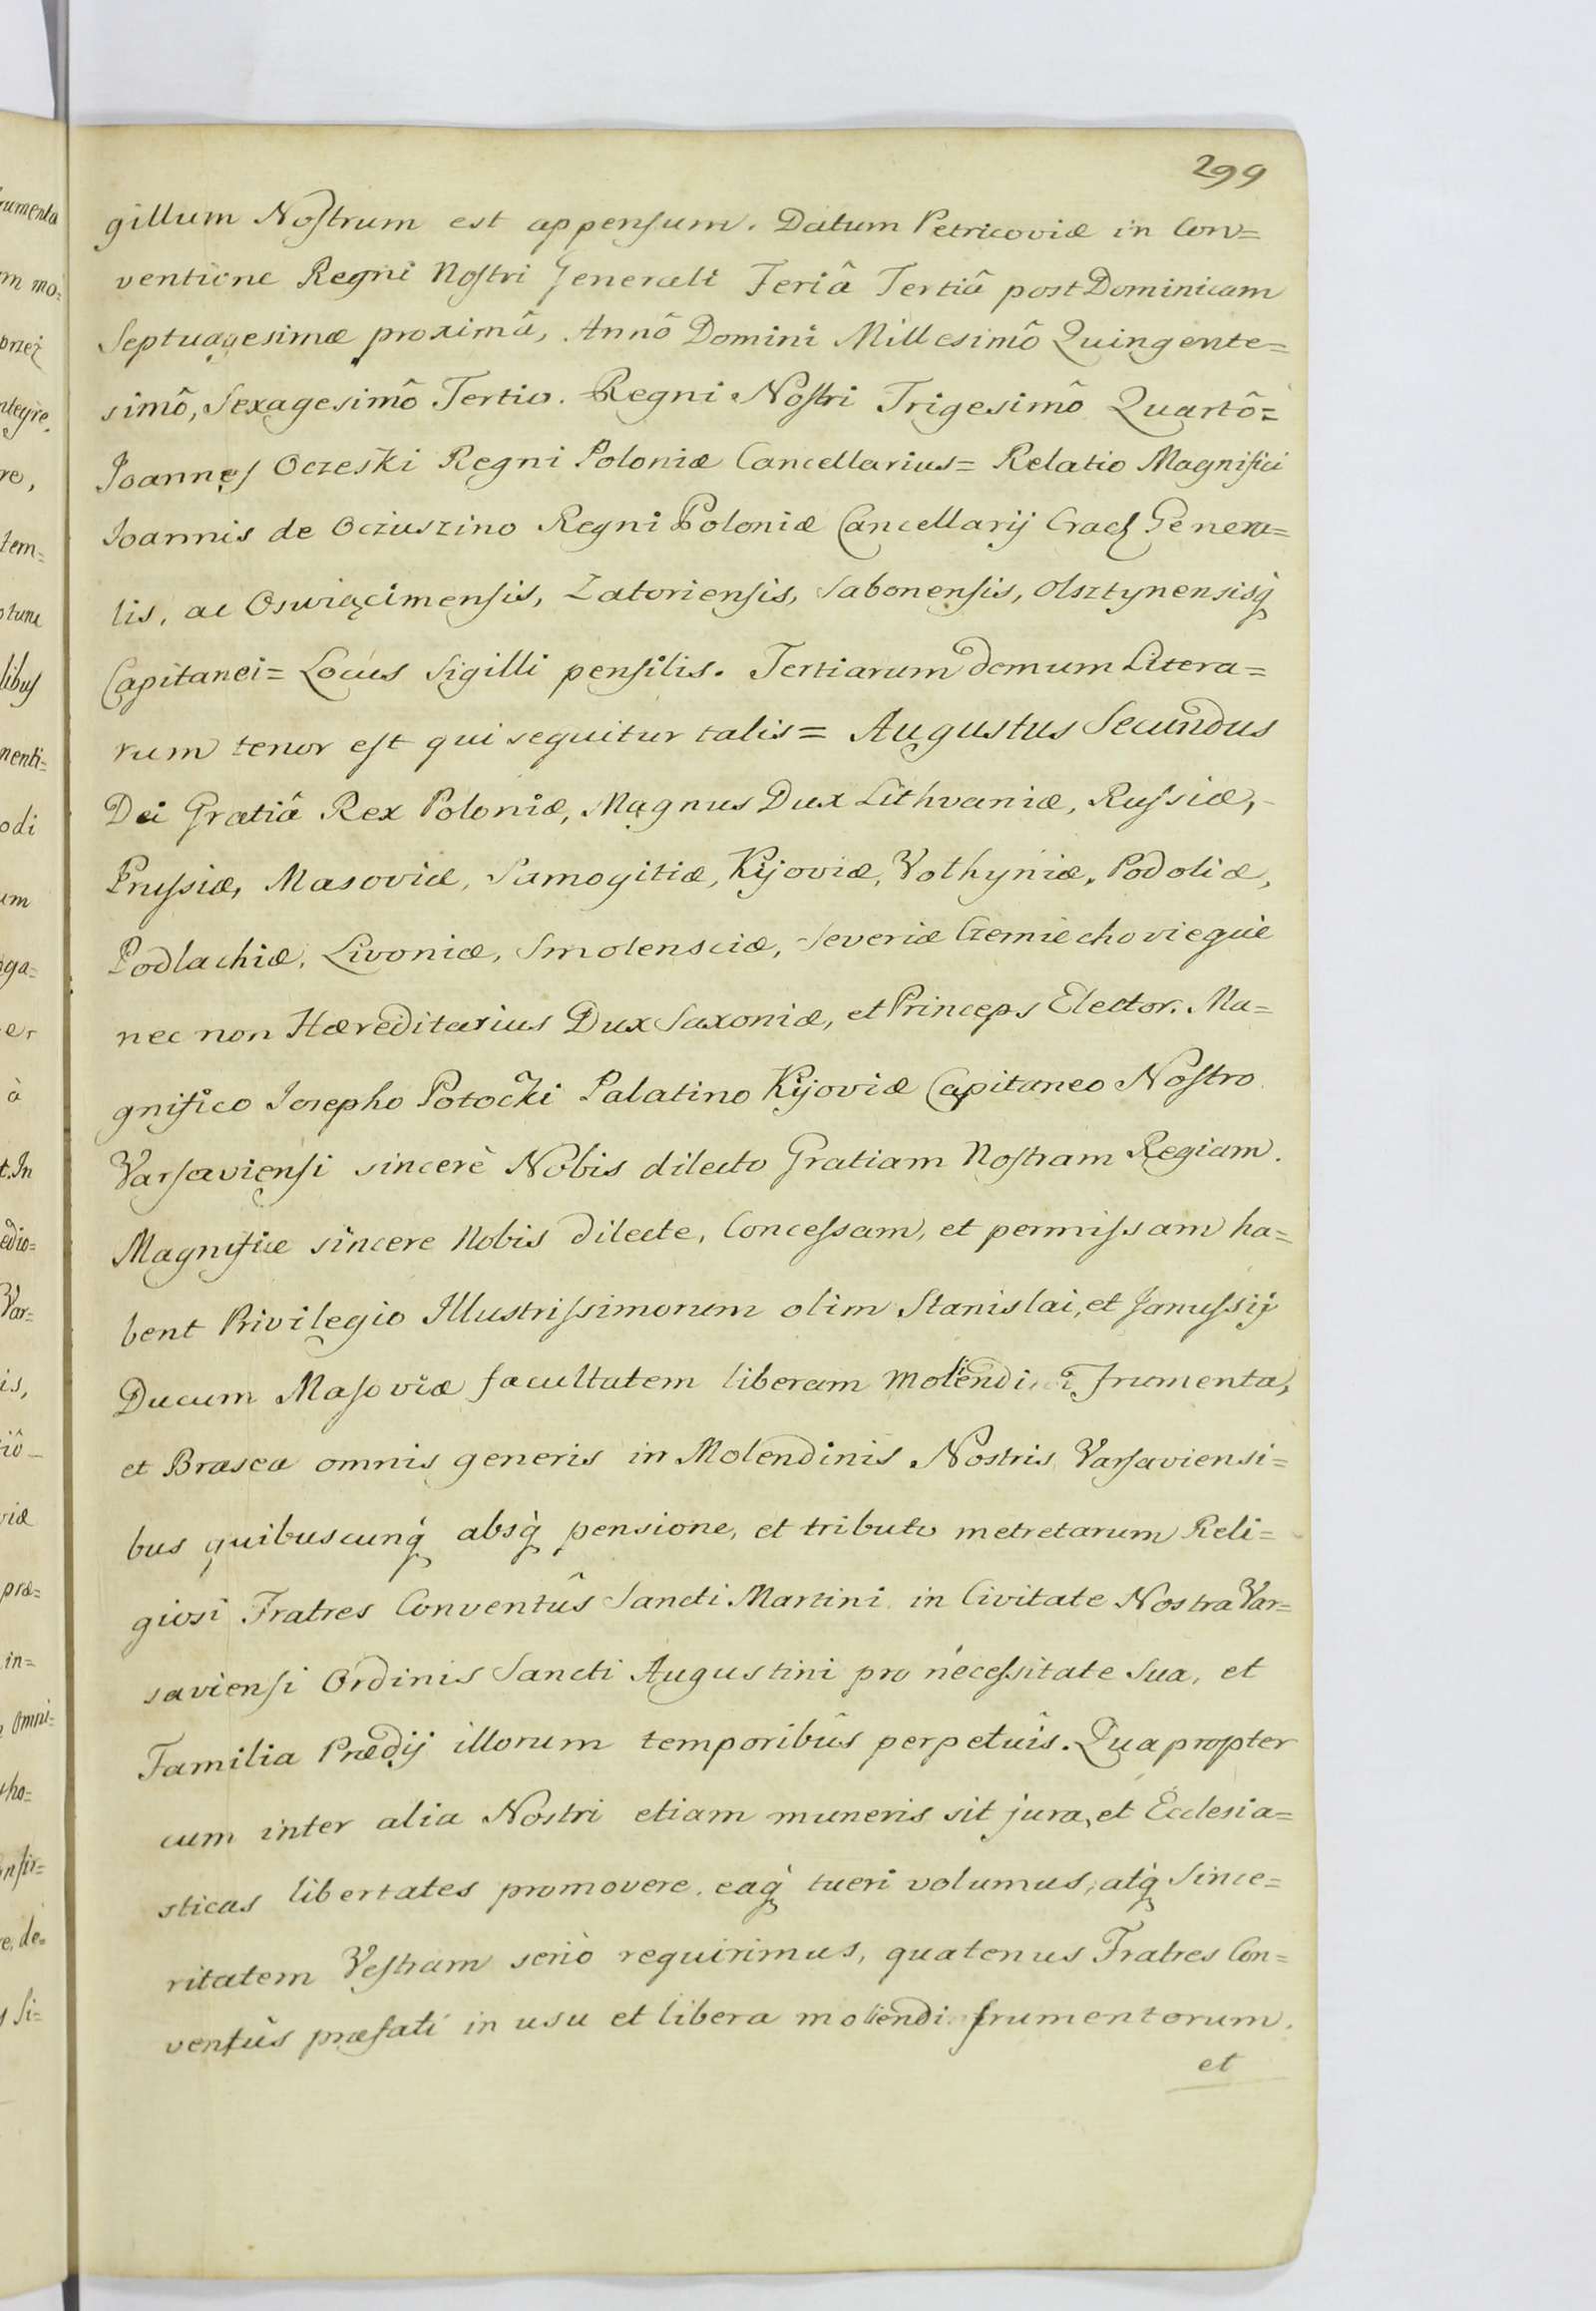 299
gillum Nostrum est appensum. Datum Petricoviæ in Con=
ventione Regni Nostri Generali Feriâ Tertiâ post Dominicam
Septuagesimæ proximâ, Annô Domini Millesimô Quingente=
simô, Sexagesimô Tertio. Regni Nostri Trigesimô Quartô=
Joannes Oczeski Regni Poloniæ Cancellarius= Relatio Magnifici
Joannis de Ocziuszino Regni Poloniæ Cancellarij Crac. Genera=
lis, ac Oswięcimensis, Zatoriensis, Sabonensis, Olsztynensisq́
Capitanei= Locus Sigilli pensilis. Tertiarum demum Litera=
rum tenor est qui sequitur talis= Augustus Secundus
Dei Gratiâ Rex Poloniæ, Magnus Dux Lithvaniæ, Russiæ,
Prussiæ, Masoviæ, Samogitiæ, Kijoviæ, Volhyniæ, Podoliæ,
Podlachiæ, Livoniæ, Smolensciæ, Severiæ Czerniechovieque
nec non Hæreditarius Dux Saxoniæ, et Princeps Elector. Ma=
gnifico Josepho Potocki Palatino Kijoviæ Capitaneo Nostro
Varsaviensi sincerè Nobis dilecto Gratiam Nostram Regiam.
Magnifice sincere Nobis dilecte, Concessam, et permissam ha=
bent Privilegio Illustrissimorum olim Stanislai, et Janussij
Ducum Masoviæ facultatem liberam molendi frumenta,
et Brasea omnis generis in Molendinis Nostris Varsaviensi=
bus quibuscunq́ absq́ pensione, et tributo metretarum Reli=
giosi Fratres Conventûs Sancti Martini in Civitate Nostra Var=
saviensi Ordinis Sancti Augustini pro necessitate Sua, et
Familia Prædij illorum temporibûs perpetuîs. Quapropter
cum inter alia Nostri etiam muneris sit jura, et Ecclesia=
sticas libertates promovere. eaq́ tueri volumus, atq́ Since=
ritatem Vestram seriò requirimus, quatenus Fratres Con=
ventûs præfati in usu et libera molendi frumentorum.
et